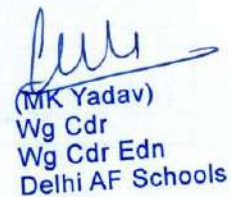 (MK Yadav)
Wg Cdr
Wg Cdr Edn
Delhi AF Schools